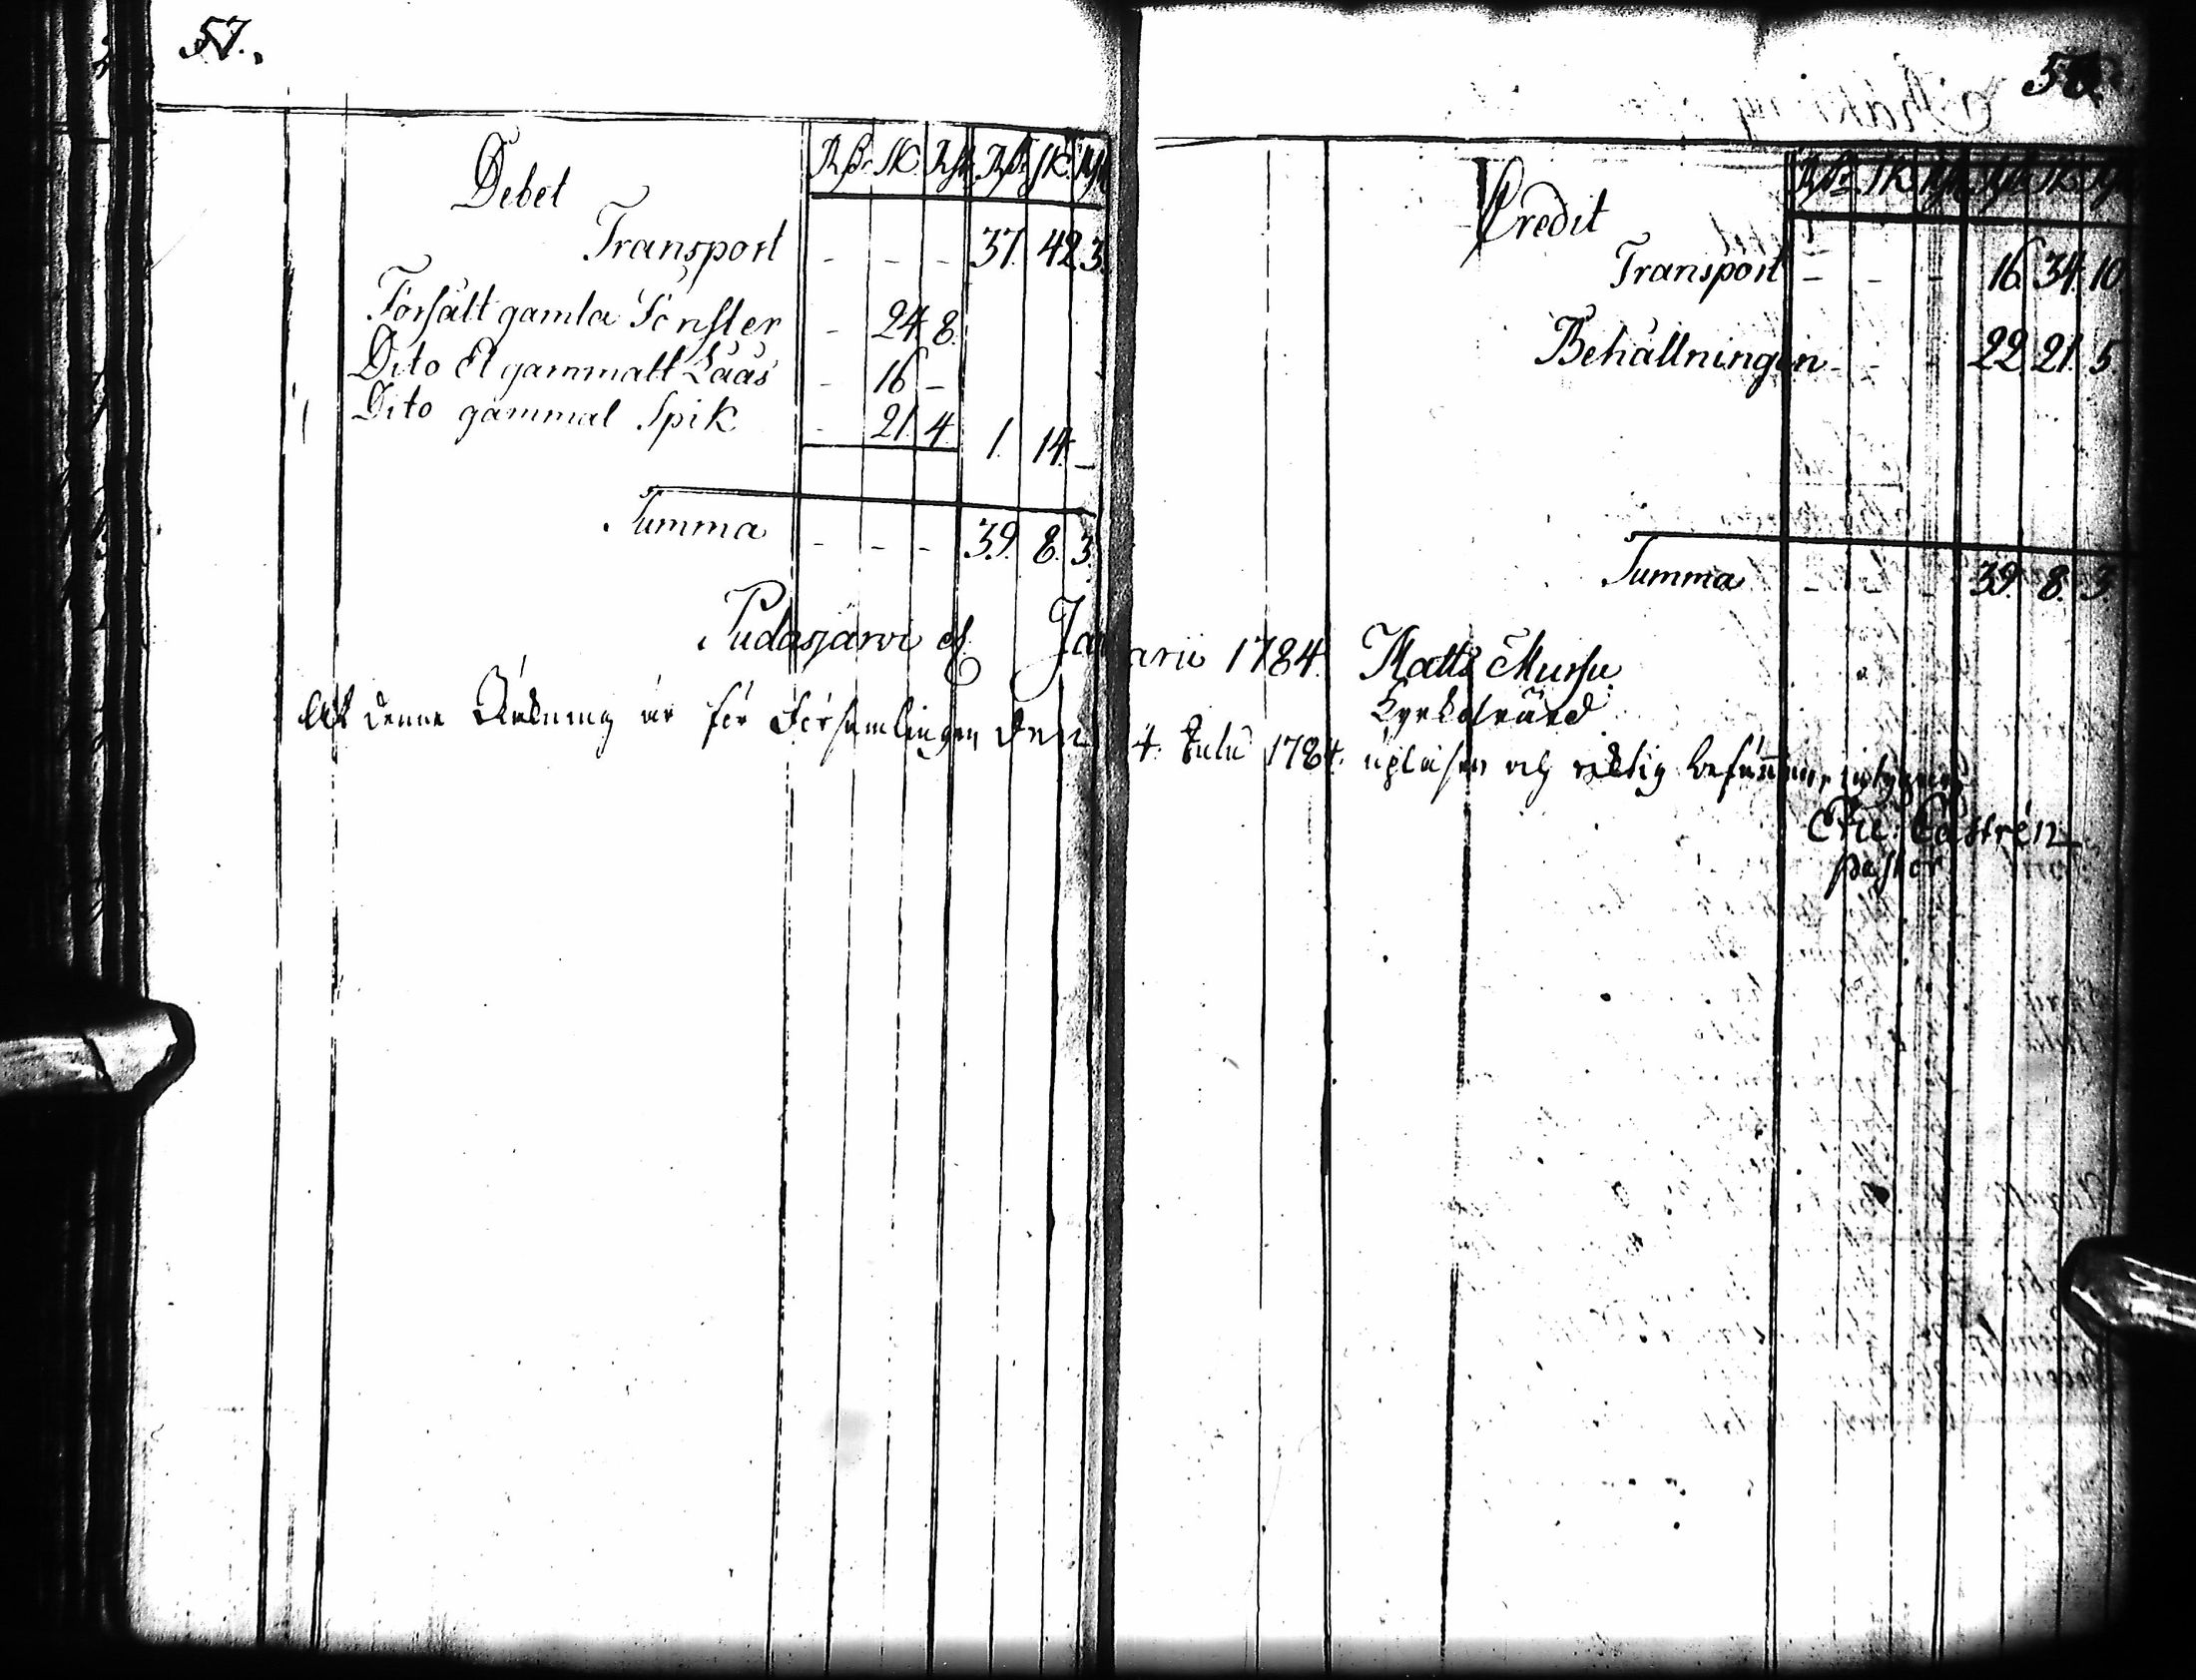 57.
Debet Rdr SK Rst Rdr SK Rst
Transport - - - 37. 42 3.
Försålt gamla Fönster - 24. 8.
Dito Et gammalt Låås - 16 -
Dito gammal Spik - 21. 4. 1. 14. -
Summa - - - 39. 8. 3.
58.
Credit Rdr SK Rst Rdr SK Rst
Transport - - - 16 34. 10
Behållningen - - - 22 21. 5
Summa - - - 39. 8. 3.
Pudasjärvi d. Januarii 1784. Matts Mursu
Kyrkovärd
Att denne Räkning är för Församlingen den 4. Julii 1784. upläsen och riktig befunnen, intygar
Eric Castrén
pastor